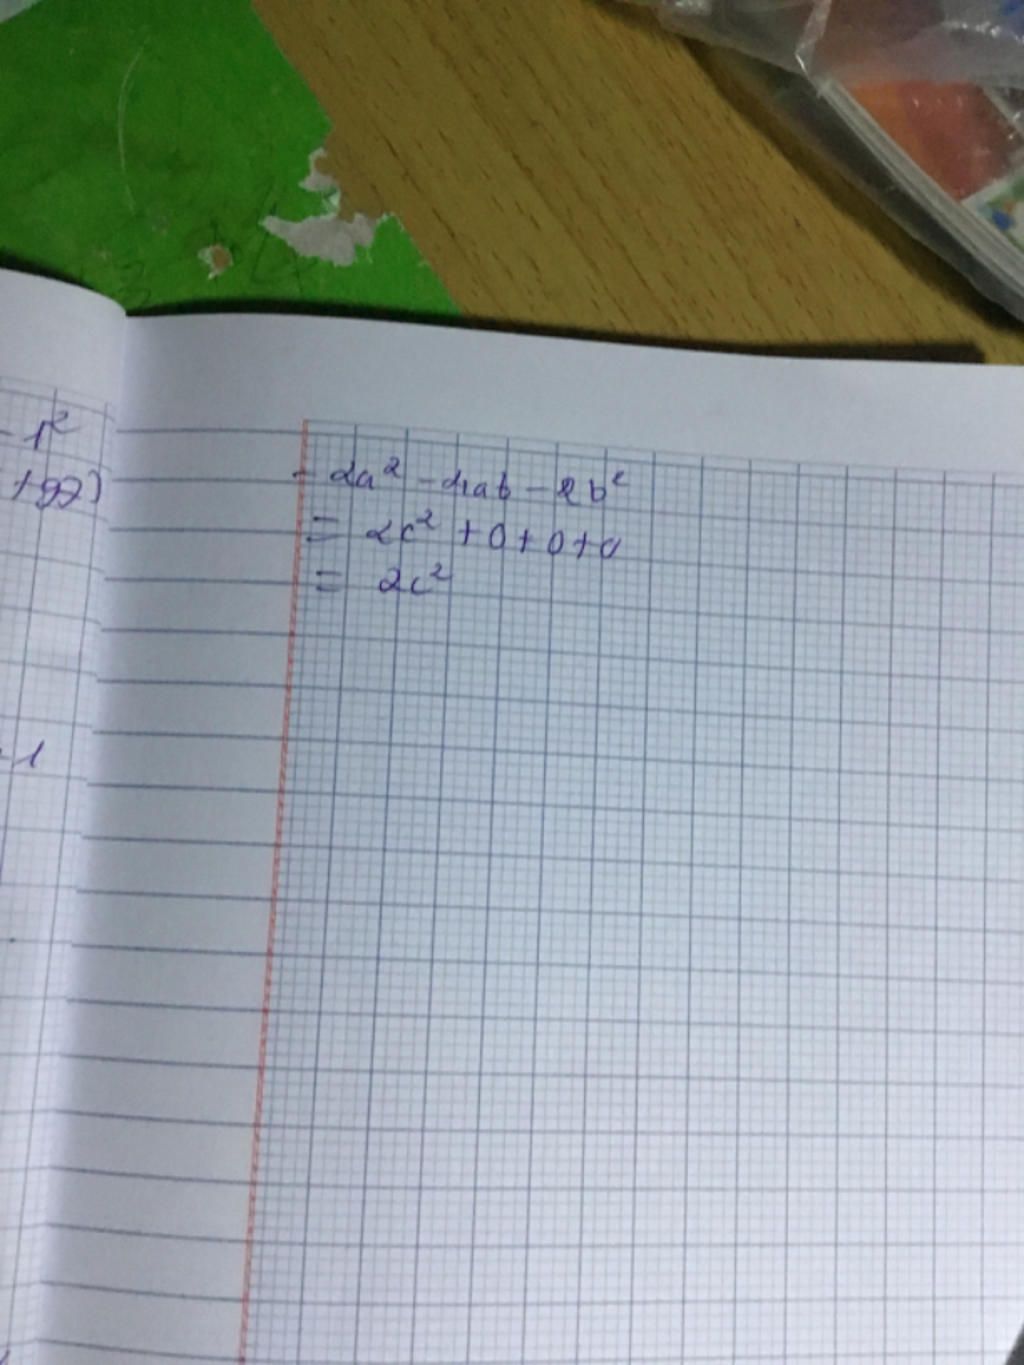 - 1²
+ 99)
- 1
- 2a² - 4ab - 2b²
= 2c² + 0 + 0 + 0
= 2c²